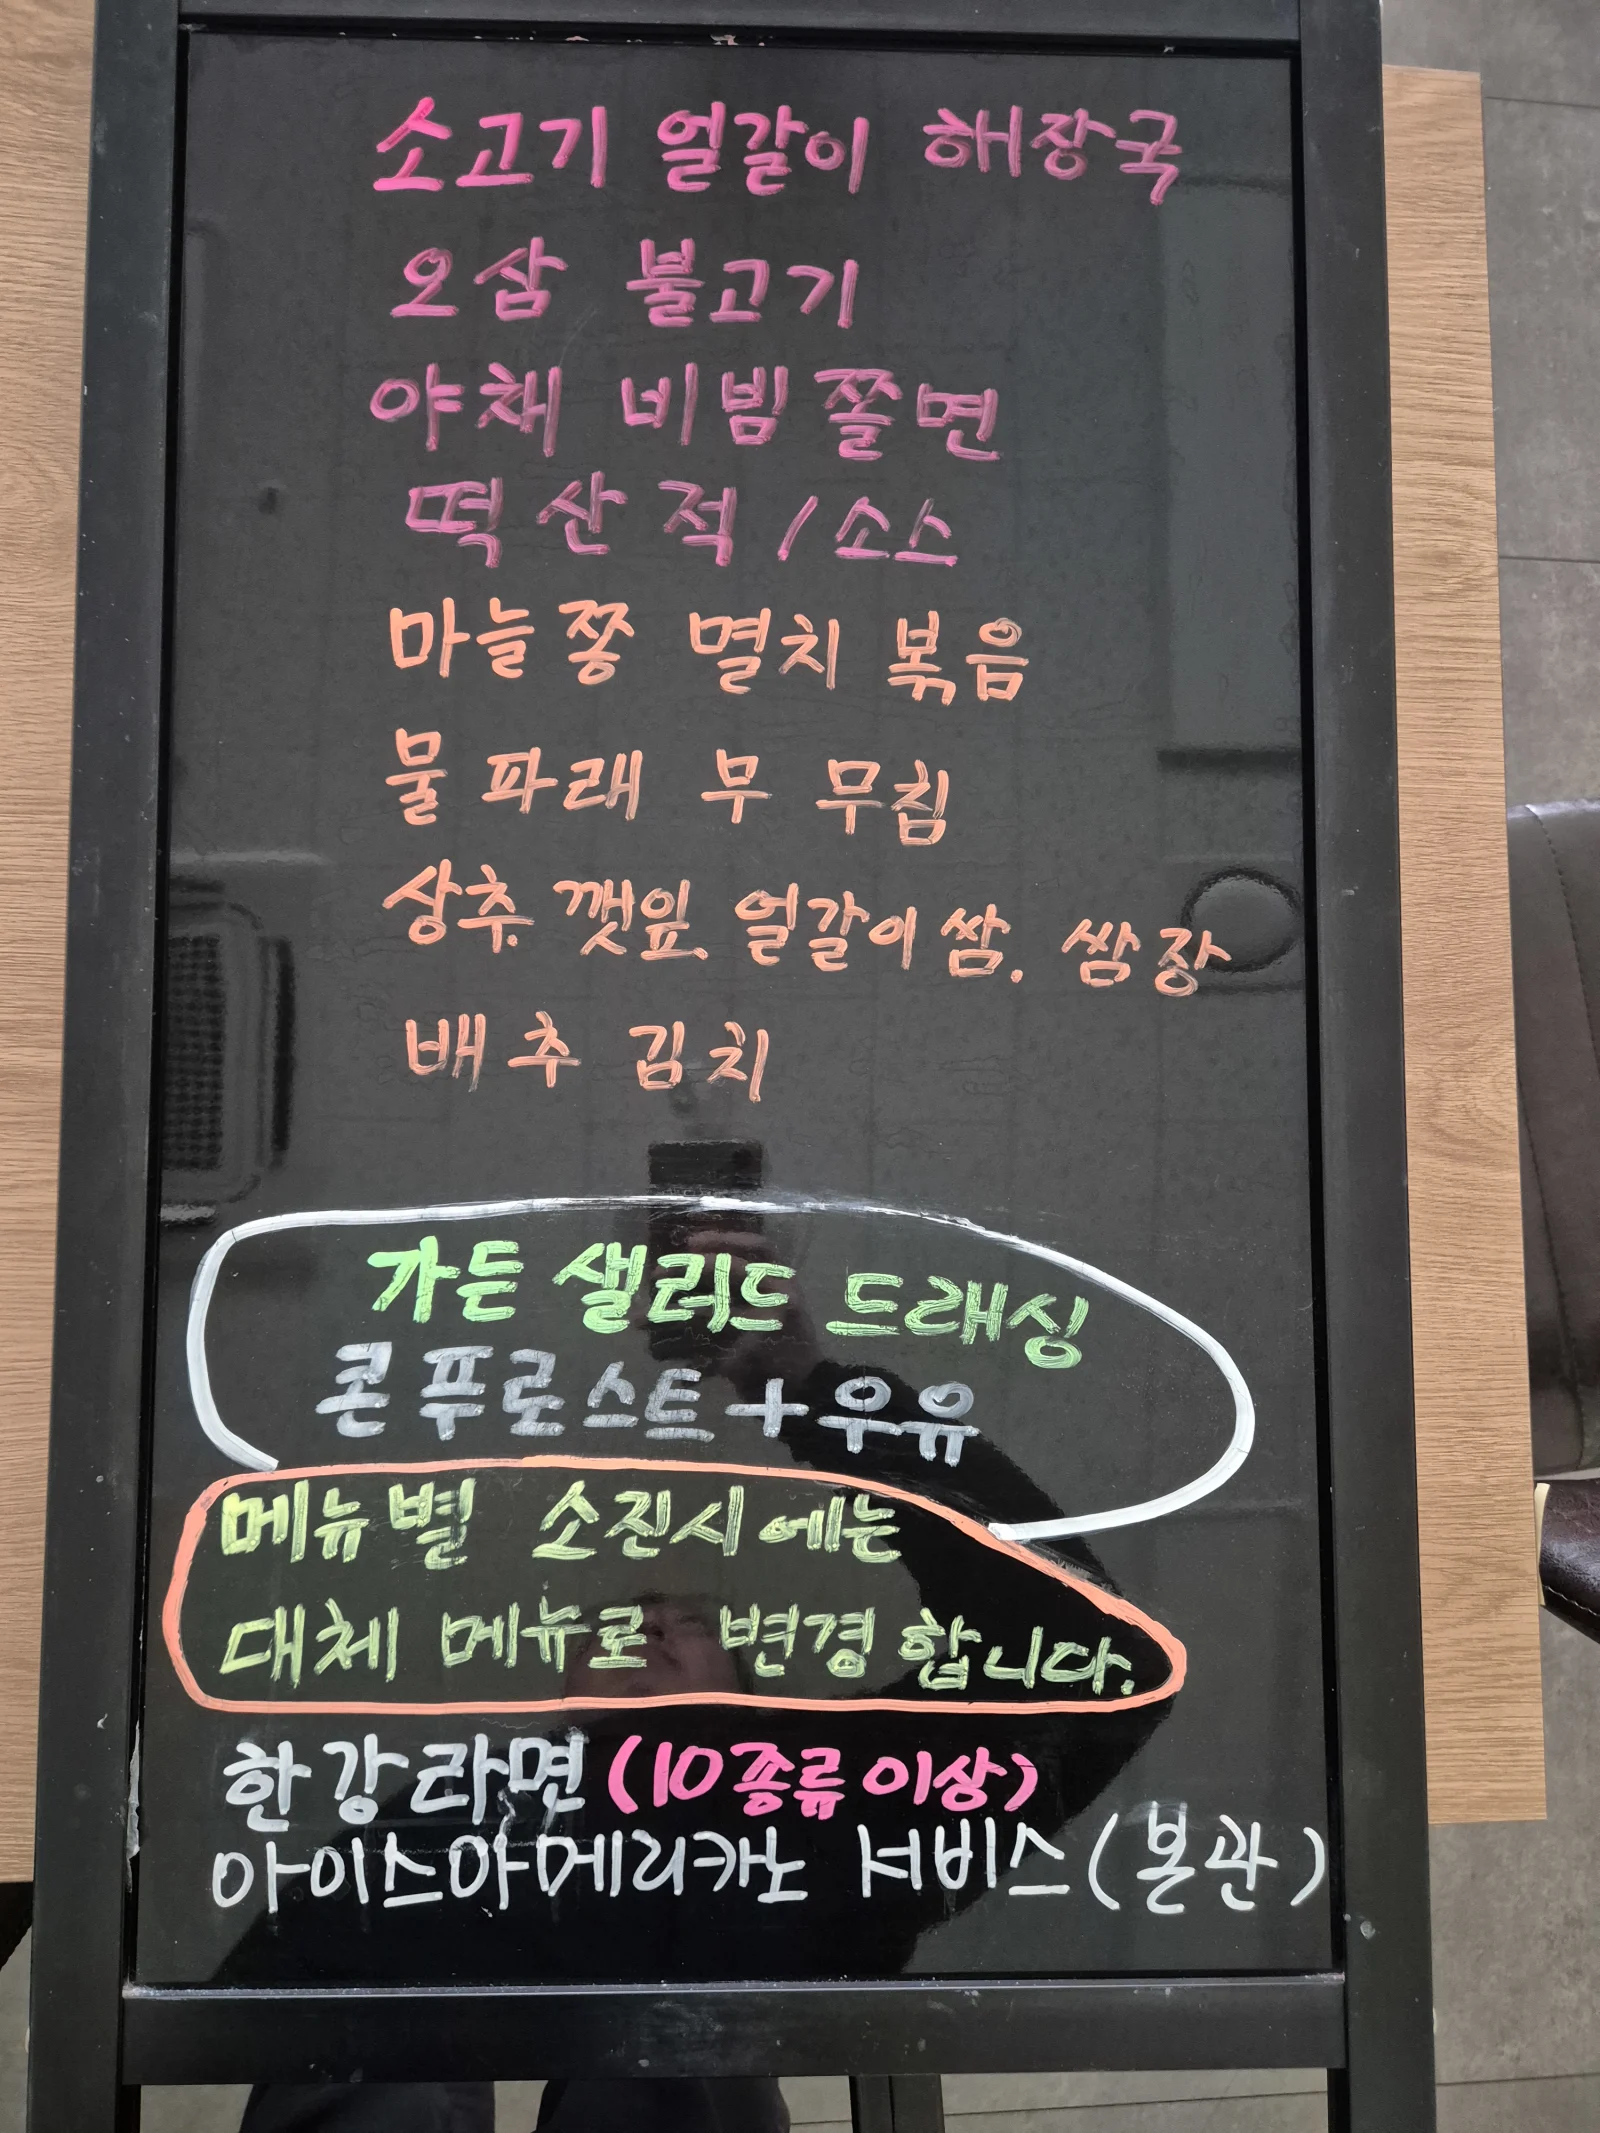 소고기 얼갈이 해장국
오삼 불고기
야채 비빔쫄면
떡산적/소스
마늘쫑 멸치 볶음
물파래 무 무침
상추. 깻잎. 얼갈이 쌈. 쌈장
배추김치
가든 샐러드 드래싱
콘푸로스트+우유
메뉴별 소진시에는
대체 메뉴로 변경합니다.
한강라면(10종류이상)
아이스아메리카노 서비스(본관)